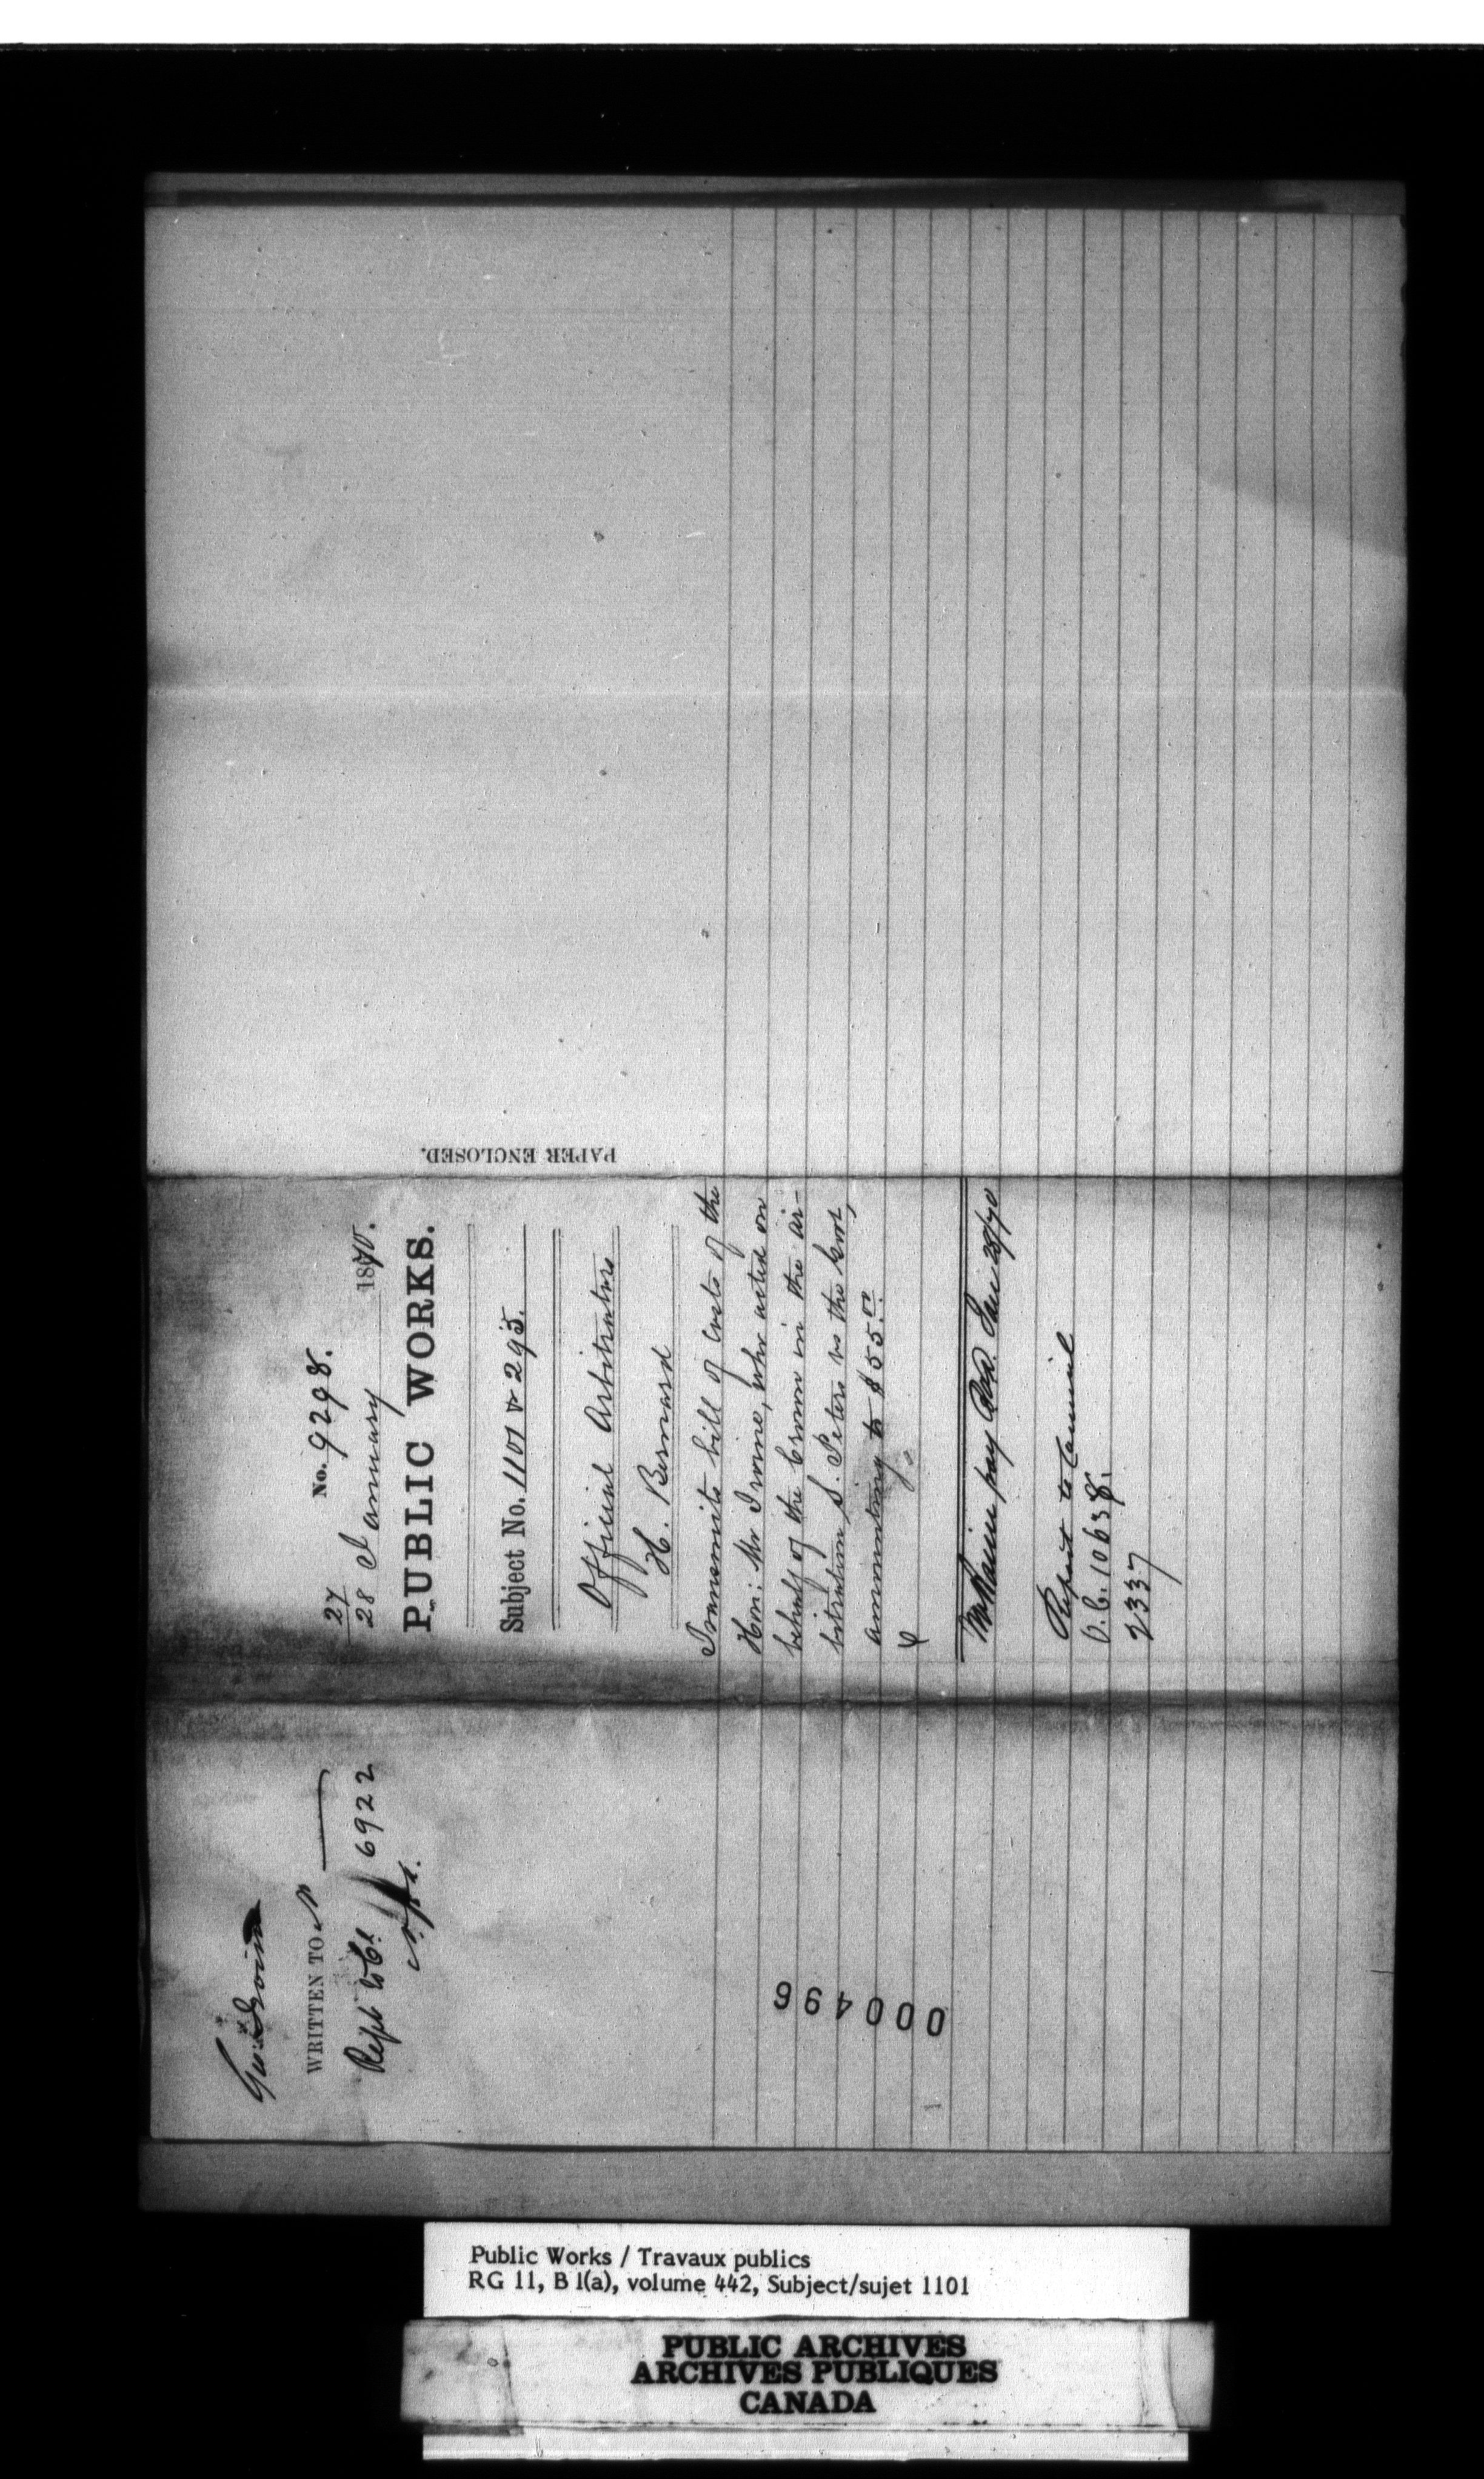 No. 9298.
27
28 January 1870.
PUBLIC WORKS.
Subject No. 1101 & 295.
Official Arbitrators
H. Bernard
Transmits bill of costs of the
Hon: Mr Irvine, who acted on
behalf of the Crown in the ar-
bitration S. Peters vs the Govt,
amounting to $55.00
pay Jan 28/70
Report to Council
O.C. 10638.
2337
PAPER ENCLOSED.
WRITTEN TO
Rept to Cl. 6922
000496
Public Works / Travaux publics
RG 11, B 1(a), volume 442, Subject/sujet 1101
PUBLIC ARCHIVES
ARCHIVES PUBLIQUES
CANADA